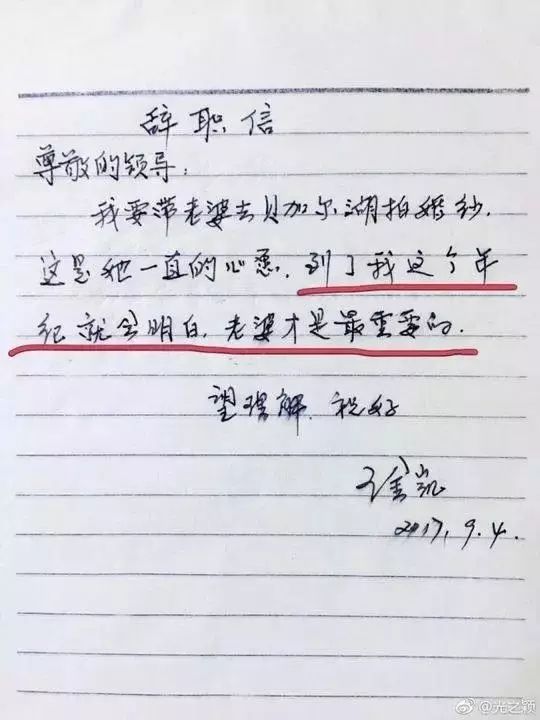 辞职信
尊敬的领导:
我要带老婆去贝加尔湖拍婚纱.
这是她一直的心愿.到了我这个年
纪就会明白.老婆才是最重要的.
望理解.祝好
2017.9.4.
@光之颖